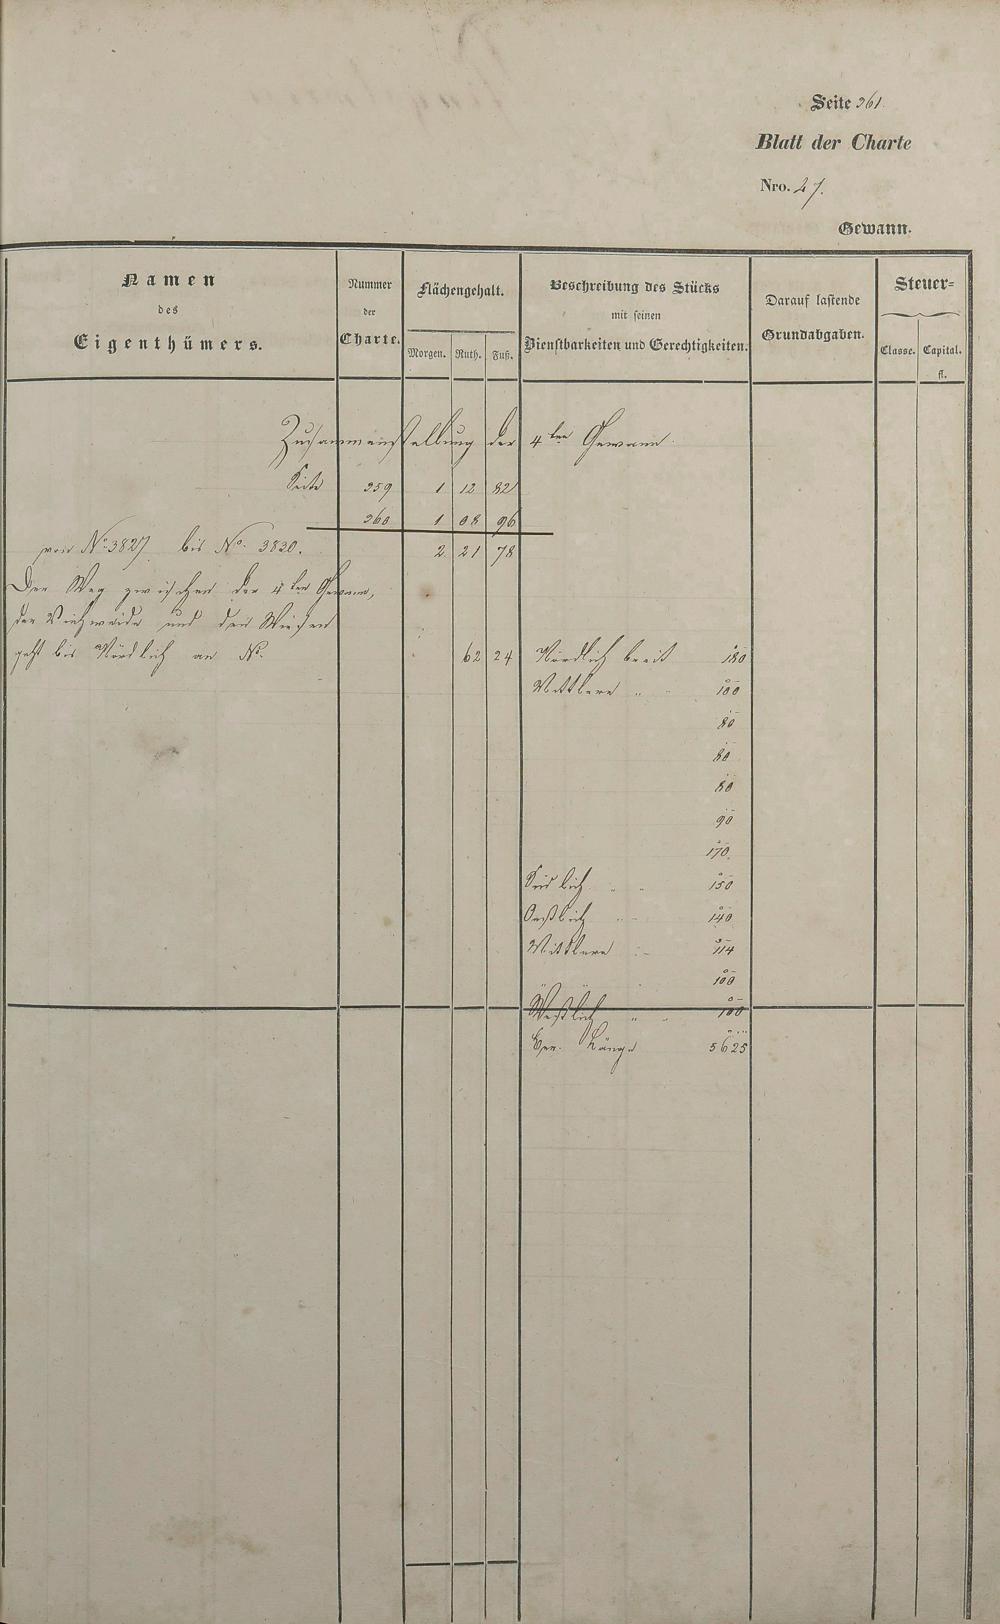 Seite 361
Blatt der Charte
Nro. 27.
Gewann.
Namen des Eigenthümers.
Nummer der Charte.
Flächengehalt.
Morgen. Ruth. Fuß.
Beschreibung des Stücks mit seinen Dienstbarkeiten und Gerechtigkeiten.
Darauf lastende Grundabgaben.
Steuer=
Classe. Capital. fl.
Zusammenstellung der 4ten Gewann
Seite 359 1 12 82
360 1 08 96
von No. 3827 bis No. 3830. 2 21 78
Der Weg zwischen der 4ten Gewann,
der Viehweide und den Wiesen
geht bis Nördlich an No. 62 24 Nördlich breit 180
Mittlere " " 100
80
80
80
90
170.
Südlich " " 150
Oestlich " " 140
Mittlere " " 114
100
Westlich " " 100
Länge 5625